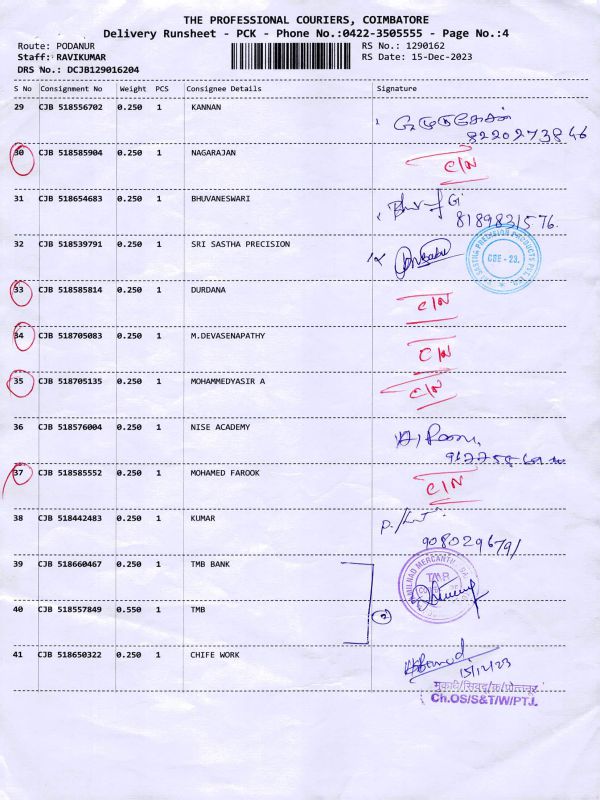 THE PROFESSIONAL COURIERS, COIMBATORE
Delivery Runsheet - PCK - Phone No.:0422-3505555 - Page No.:4
Route: PODANUR RS No.: 1290162
Staff: RAVIKUMAR RS Date: 15-Dec-2023
DRS No.: DCJB129016204
S No Consignment No Weight PCS Consignee Details Signature
29 CJB 518556702 0.250 1 KANNAN
8220273846
30 CJB 518585904 0.250 1 NAGARAJAN C/N
31 CJB 518654683 0.250 1 BHUVANESWARI
8189831576.
32 CJB 518539791 0.250 1 SRI SASTHA PRECISION
SASTHA PRECISION PRODUCTS PVT. LTD.
CBE - 23.
33 CJB 518585814 0.250 1 DURDANA C/N
34 CJB 518705083 0.250 1 M.DEVASENAPATHY C/N
35 CJB 518705135 0.250 1 MOHAMMEDYASIR A C/N
36 CJB 518576004 0.250 1 NISE ACADEMY
37 CJB 518585552 0.250 1 MOHAMED FAROOK C/N
38 CJB 518442483 0.250 1 KUMAR
9080296791
39 CJB 518660467 0.250 1 TMB BANK
TAMILNAD MERCANTILE
TMB
40 CJB 518557849 0.550 1 TMB 2
41 CJB 518650322 0.250 1 CHIFE WORK
15/12/23
Ch.OS/S&T/W/PTJ.